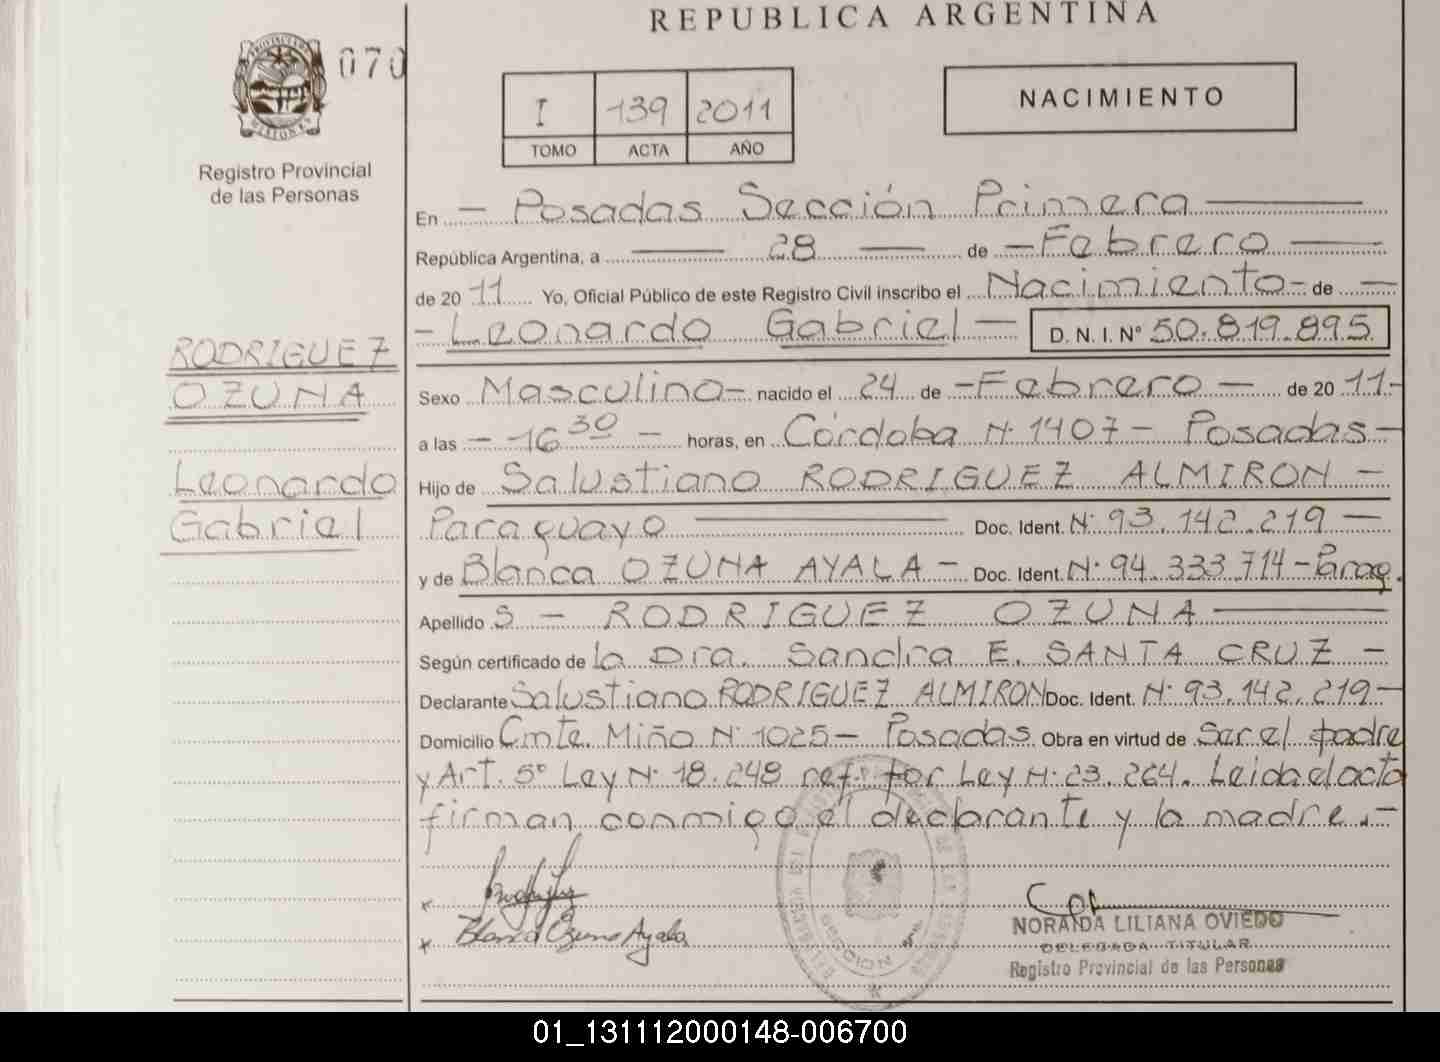 REPUBLICA ARGENTINA
070
I 139 2011
TOMO ACTA AÑO
NACIMIENTO
Registro Provincial
de las Personas
En - Posadas Sección Primera
República Argentina, a 28 de - Febrero
de 20 11 Yo, Oficial Público de este Registro Civil inscribo el Nacimiento - de -
- Leonardo Gabriel - D. N. I. Nº 50.819.895
RODRIGUEZ
OZUNA
Leonardo
Gabriel
Sexo Masculino - nacido el 24 de - Febrero - de 20 11 -
a las - 16 30 - horas, en Córdoba Nº 1407 - Posadas -
Hijo de Salustiano RODRIGUEZ ALMIRON -
Paraguayo Doc. Ident. Nº 93.142.219 -
y de Blanca OZUNA AYALA - Doc. Ident. Nº 94.333.714 - Parag.
Apellido S - RODRIGUEZ OZUNA
Según certificado de la Dra. Sandra E. SANTA CRUZ -
Declarante Salustiano RODRIGUEZ ALMIRON Doc. Ident. Nº 93.142.219 -
Domicilio Cmte. Miño Nº 1025 - Posadas Obra en virtud de Ser el padre
y Art. 5º Ley Nº 18.248 ref. por Ley Nº 23.264. Leida el acta
firman conmigo el declarante y la madre. -
Blanca Ozuna Ayala
NORAIDA LILIANA OVIEDO
DELEGADA TITULAR
Registro Provincial de las Personas
01_131112000148-006700